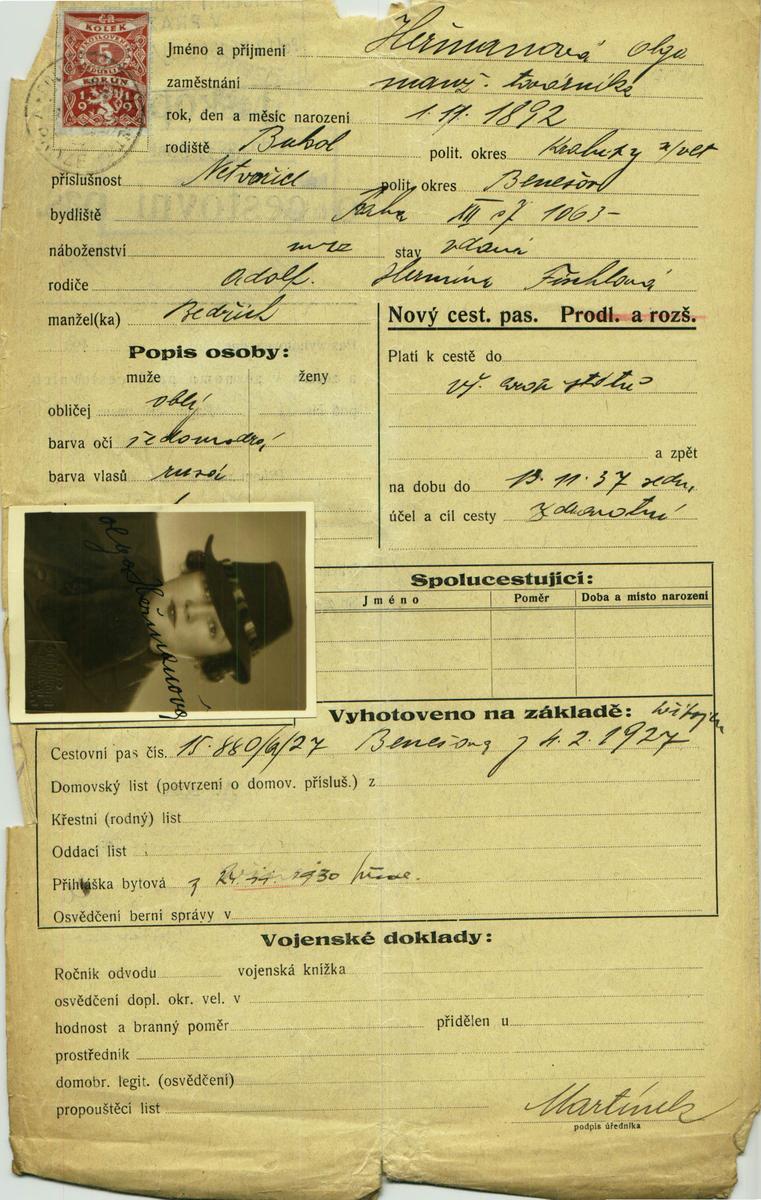 KOLEK
5
KORUN
1919
Jméno a příjmení Heřmanová Olga
zaměstnání manž. továrníka
rok, den a měsíc narození 1. 11. 1892
rodiště Bukol polit. okres Kralupy n/Vlt
příslušnost Netvořice polit. okres Benešov
bydliště Praha XII čp 1063-
náboženství stav vdaná
rodiče Adolf. Hermina Fischlová
manžel(ka) Bedřich
Nový cest. pas. Prodl. a rozš.
Popis osoby:
muže ženy
obličej oblý
barva očí šedomodrá
barva vlasů rusá
Platí k cestě do
vš. evrop států
a zpět
na dobu do 13. 11. 37
účel a cíl cesty zdravotní
Olga Heřmanová
Spolucestující:
Jméno Poměr Doba a místo narození
Vyhotoveno na základě:
Cestovní pas čís. 15.880/a/27 Benešova z 4. 2. 1927
Domovský list (potvrzení o domov. přísluš.) z
Křestní (rodný) list
Oddací list
Přihláška bytová z 24. 11. 1930
Osvědčení berní správy v
Vojenské doklady:
Ročník odvodu vojenská knížka
osvědčení dopl. okr. vel. v
hodnost a branný poměr přidělen u
prostředník
domobr. legit. (osvědčení)
propouštěcí list
Martínek
podpis úředníka